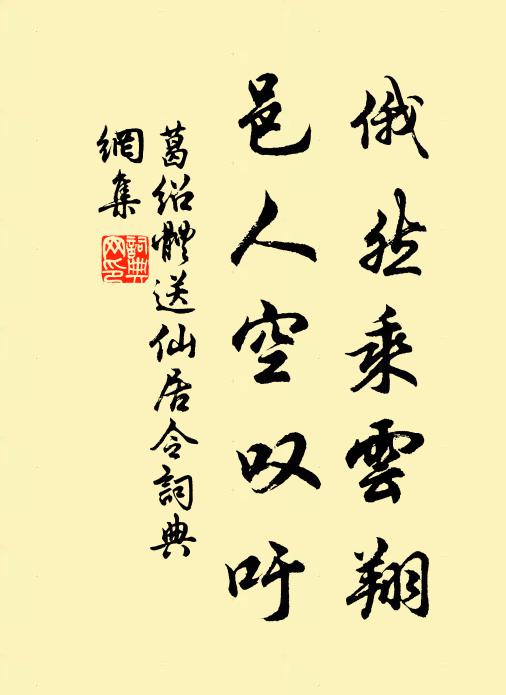 俄然乘雲翔
邑人空叹吁
葛绍體送仙居令詞典
網集
詞典
网印